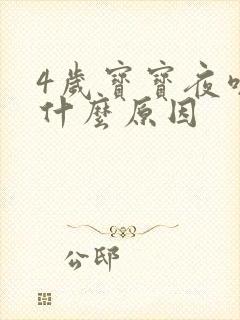 4歲寶寶夜
什麼原因
公邸